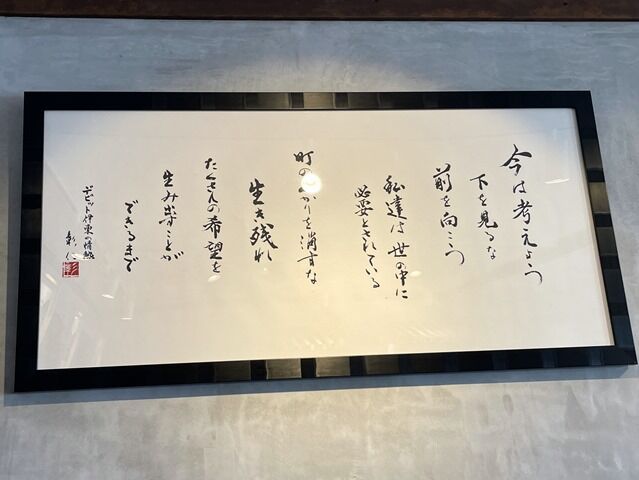 今は考えよう
下を見るな
前を向こう
私達は世の中に
必要とされている
町の かりを消すな
生き残れ
たくさんの希望を
生み出すことが
できるまで
デビット伊東の情熱
彰仁